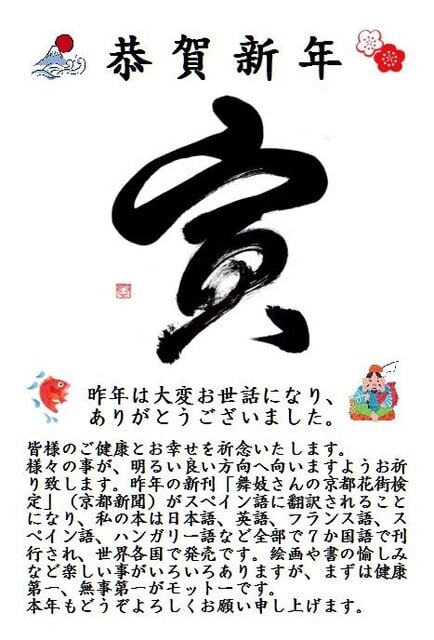 恭賀新年
寅
昨年は大変お世話になり、
ありがとうございました。
皆様のご健康とお幸せを祈念いたします。
様々の事が、明るい良い方向へ向いますようお祈
り致します。昨年の新刊「舞妓さんの京都花街検
定」（京都新聞）がスペイン語に翻訳されること
になり、私の本は日本語、英語、フランス語、ス
ペイン語、ハンガリー語など全部で７か国語で刊
行され、世界各国で発売です。絵画や書の愉しみ
など楽しい事がいろいろありますが、まずは健康
第一、無事第一がモットーです。
本年もどうぞよろしくお願い申し上げます。